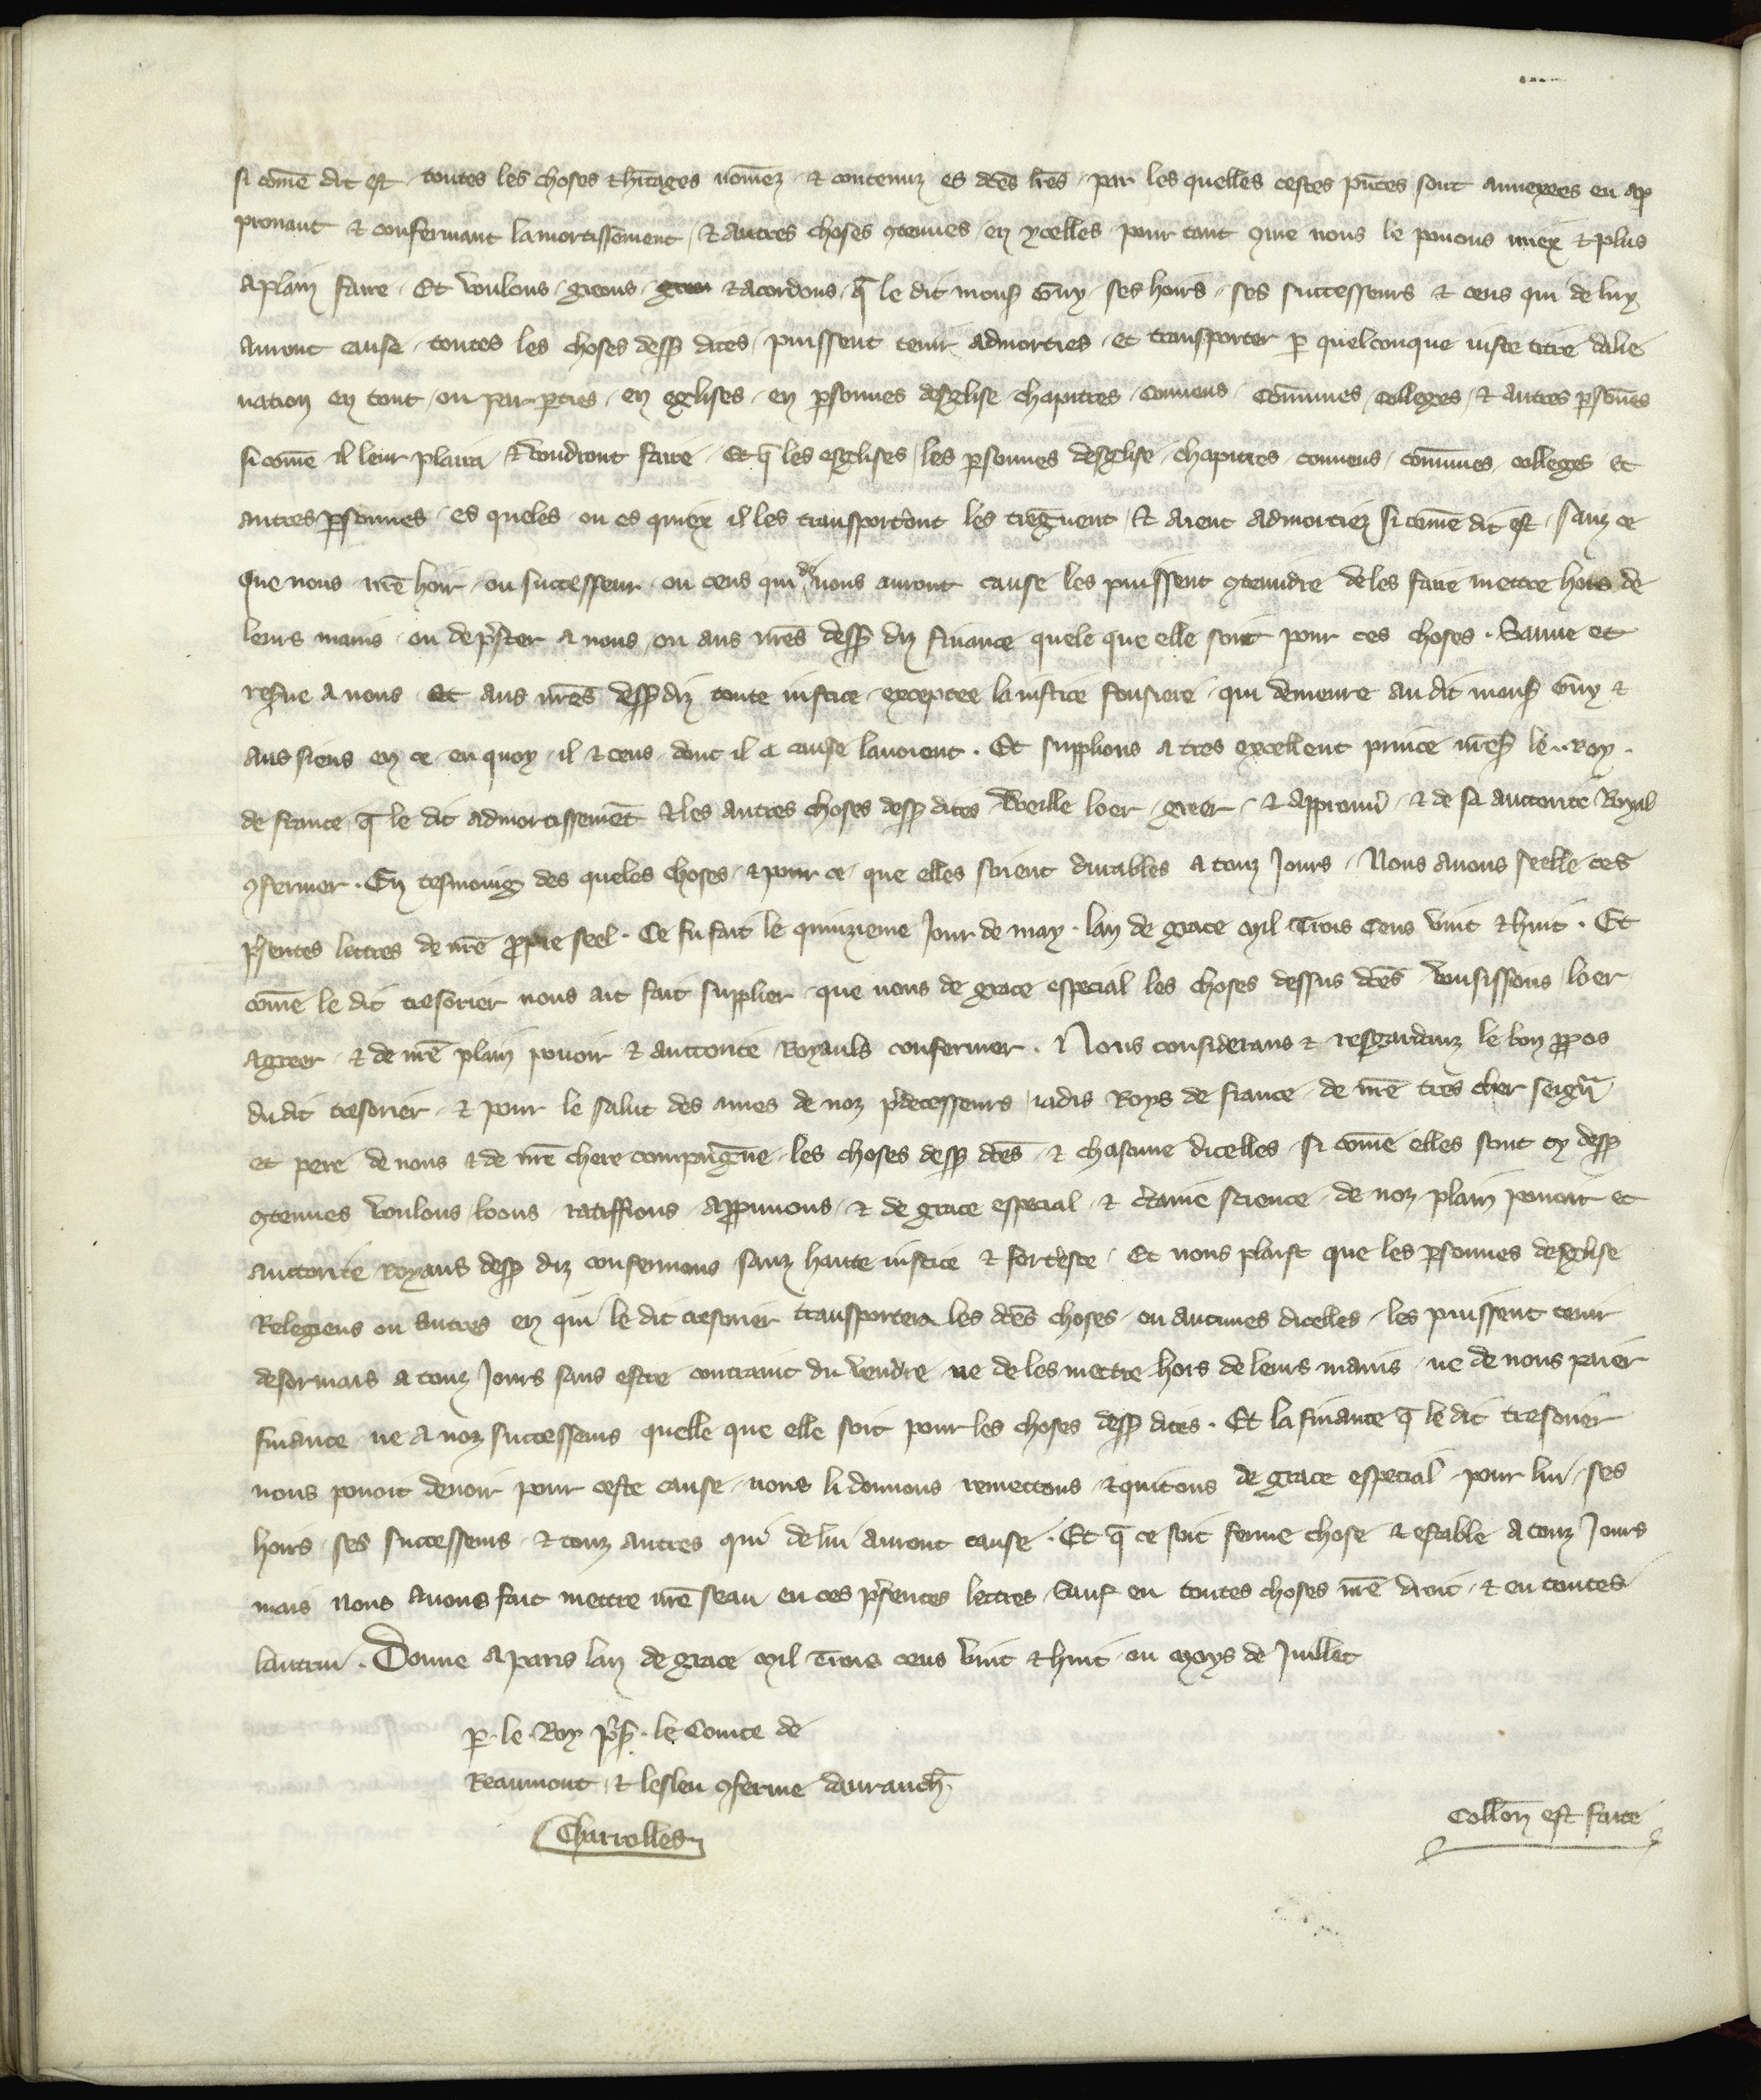 si com̄e dit est toutes les choses & hītages nom̄ez & contenuz es dc̄es lr̄es par les quelles cestes pn̄tes sont annexees en ap
prouant & confermant lamortissement & autres choses ꝯtenues en ycelles pour tant que nous le pouons miex & plus
aplain faire. Et voulons greons & acordons q̄ le dit mons̄ Guy ses hoirs ses successeurs & ceus qui de luy
auront cause toutes les choses dess dites puissent tenir admorties et transporter ꝑ quelconque iuste titre dalie
nation en tout ou par ꝑties en eglises en ꝑsonnes desglise chapitres conuens cōmunes colleges & autres ꝑsonn̄es
si com̄e il leur plaira & voudront faire. Et q̄ les esglises les ꝑsonnes desglise chapitres conuens cōmunes colleges et
autres ꝑsonnes es queles ou es quiex il les transporterōt les tiegnent & aient admortiez si com̄e dit est sanz ce
que nous nr̄e hoir ou successeur ou ceus qui de nous auront cause les puissent ꝯtraindre de les faire mettre hors de
leurs mains ou de p̄ster a nous ou aus nr̄es dess diz finance quele que elle soit pour ces choses. Sauue et
res̄ue a nous et aus nr̄es dess diz toute iustice exceptee la iustice fonsiere qui demeure au dit mons̄ Guy &
aus siens en ce en quoy il & ceus dont il a cause lauoient. Et supplions a tres excellent prince nr̄es̄ le Roy
de france q̄ le dit admortissemēt & les autres choses dess dites vueille loer greer & approuu̾ & de sa auctorite Royal
ꝯfermer. En tesmoing des queles choses & pour ce que elles soient durables a touz Jours Nous auons seelle ces
p̄sentes lettres de nr̄e ꝓpre seel. Ce fu fait le quinzieme Jour de may lan de grace Mil Trois Cens vint & huit. Et
com̄e le dit tresorier nous ait fait supplier que nous de grace especial les choses dessus dc̄es vousissons loer
agreer & de nr̄e plain pouoir & auctorite Royauls confermer. Nous considerans & resgardanz le bon ꝓpos
du dit tresorier & pour le salut des ames de noz p̄decesseurs iadis Roys de france de nr̄e tres cher seign̄r
et pere de nous & de nr̄e chere compaigne les choses dess dc̄es & chascune dicelles si com̄e elles sont cy dess
ꝯtenues voulons loons ratiffions approuuons & de grace especial & c̾taine science de noz plain pouoir et
auctorite royaus dess diz confermons sanz haute iustice & fort̾esce. Et nous plaist que les ꝑsonnes desglise
Relegieus ou autres en qui le dit tresorier transportera les dc̄es choses ou aucunes dicelles les puissent tenir
desormais a touz Jours sans estre contraint du vendre ne de les mettre hors de leurs mains ne de nous paier
finance ne a noz successeurs quelle que elle soit pour les choses dess dites. Et la finance q̄ le dit tresorier
nous pouoit deuoir pour ceste cause nous li donnons remettons & quitons de grace especial pour lui ses
hoirs ses successeurs & touz autres qui de lui auront cause. Et q̄ ce soit ferme chose & estable a touz Jours
mais nous auons fait mettre nr̄e seau en ces p̄sentes lettres Sauf en toutes choses nr̄e droit & en toutes
lautrui. Donne a paris lan de grace Mil Trois cens vint & huit ou Moys de Juillet
ꝑ le Roy p̄s̄ le Conte de
Beaumont & lesleu ꝯferme dauranch̄
Charrolles
Coll̄on est faite